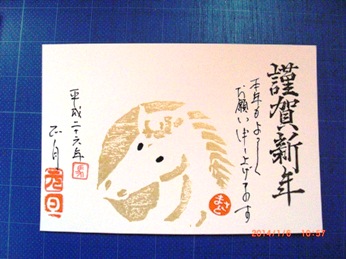 謹賀新年
本年もよろしく
お願い申し上げます
平成二十六年
正月
元旦
2014/1/6 10:57